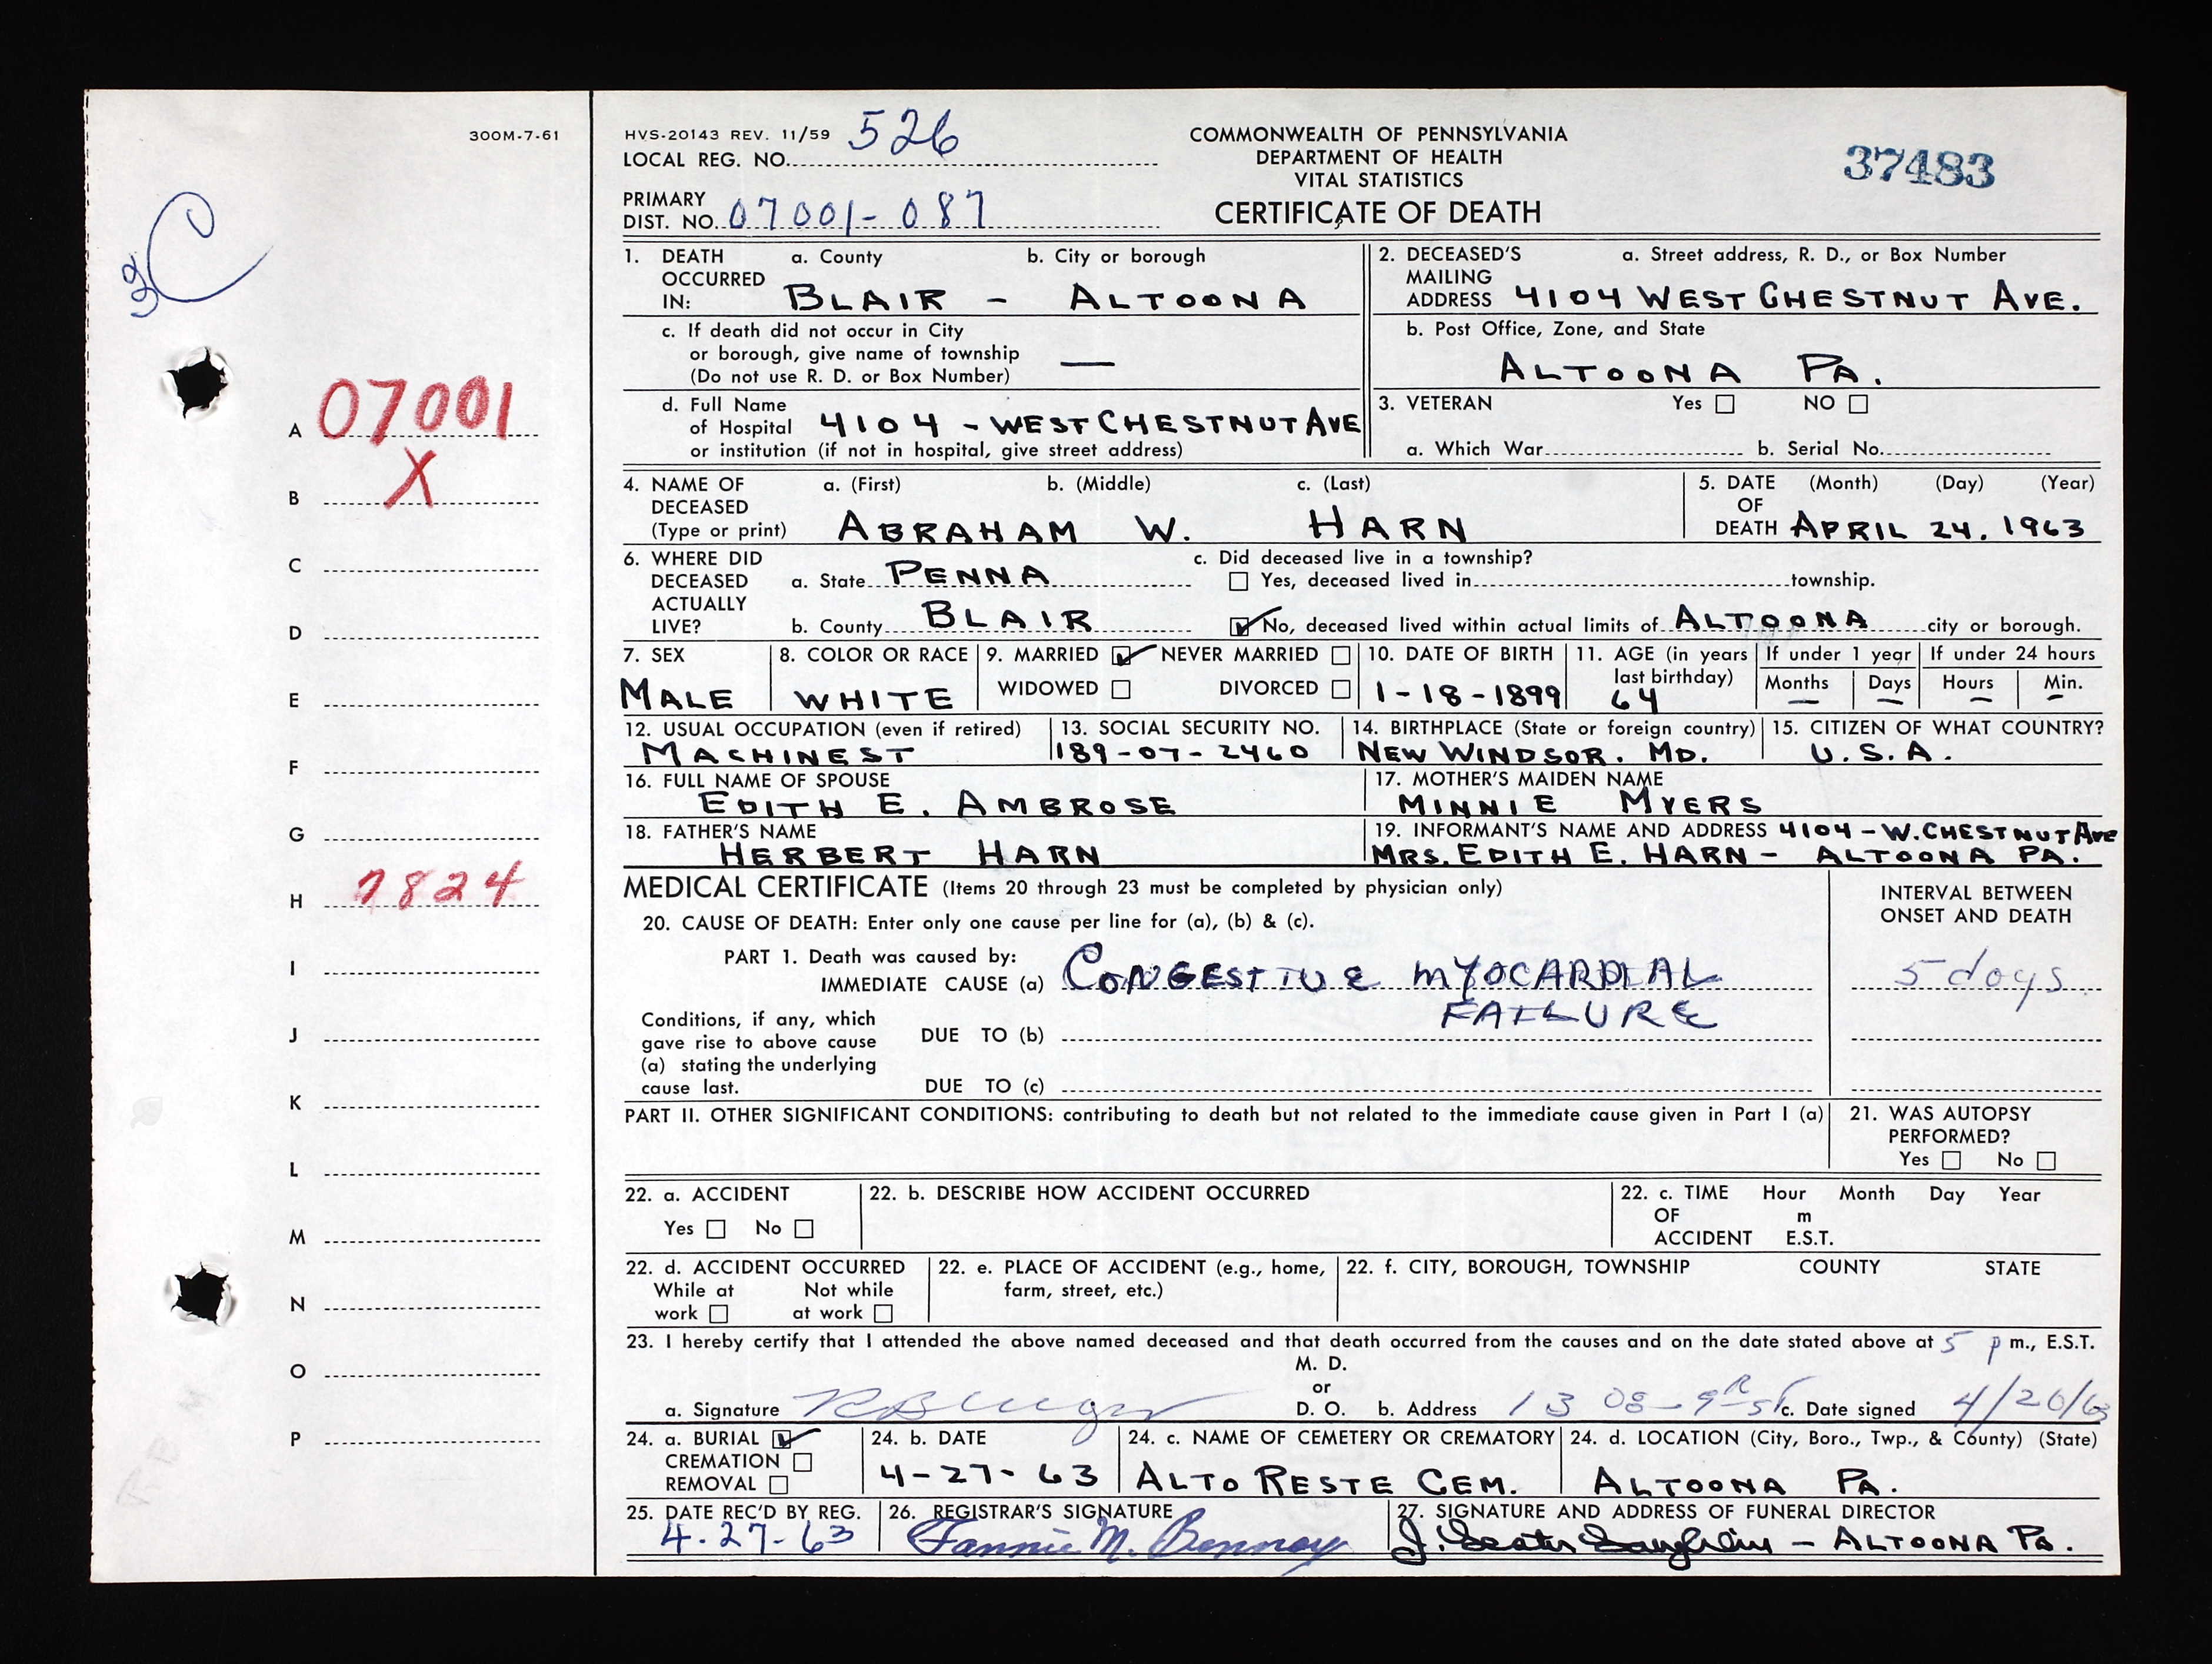 300M-7-61
HVS-20143 REV. 11/59
LOCAL REG. NO. 526
PRIMARY
DIST. NO. 07001-087
COMMONWEALTH OF PENNSYLVANIA
DEPARTMENT OF HEALTH
VITAL STATISTICS
CERTIFICATE OF DEATH
37483
A 07001
B X
C
D
E
F
G
H 7824
I
J
K
L
M
N
O
P
1. DEATH OCCURRED IN: a. County b. City or borough
BLAIR - ALTOONA
c. If death did not occur in City
or borough, give name of township —
(Do not use R. D. or Box Number)
d. Full Name
of Hospital 4104 - WEST CHESTNUT AVE
or institution (if not in hospital, give street address)
2. DECEASED'S MAILING ADDRESS a. Street address, R. D., or Box Number
4104 WEST CHESTNUT AVE.
b. Post Office, Zone, and State
ALTOONA PA.
3. VETERAN Yes NO
a. Which War b. Serial No.
4. NAME OF DECEASED (Type or print) a. (First) b. (Middle) c. (Last)
ABRAHAM W. HARN
5. DATE OF DEATH (Month) (Day) (Year)
APRIL 24. 1963
6. WHERE DID DECEASED ACTUALLY LIVE?
a. State PENNA
b. County BLAIR
c. Did deceased live in a township?
Yes, deceased lived in township.
No, deceased lived within actual limits of ALTOONA city or borough.
7. SEX
MALE
8. COLOR OR RACE
WHITE
9. MARRIED NEVER MARRIED
WIDOWED DIVORCED
10. DATE OF BIRTH
1-18-1899
11. AGE (in years last birthday)
64
If under 1 year
Months Days
— —
If under 24 hours
Hours Min.
— —
12. USUAL OCCUPATION (even if retired)
MACHINEST
13. SOCIAL SECURITY NO.
189-07-2460
14. BIRTHPLACE (State or foreign country)
NEW WINDSOR. MD.
15. CITIZEN OF WHAT COUNTRY?
U.S.A.
16. FULL NAME OF SPOUSE
EDITH E. AMBROSE
17. MOTHER'S MAIDEN NAME
MINNIE MYERS
18. FATHER'S NAME
HERBERT HARN
19. INFORMANT'S NAME AND ADDRESS 4104-W.CHESTNUT Ave
MRS. EDITH E. HARN - ALTOONA PA.
MEDICAL CERTIFICATE (Items 20 through 23 must be completed by physician only)
INTERVAL BETWEEN
ONSET AND DEATH
20. CAUSE OF DEATH: Enter only one cause per line for (a), (b) & (c).
PART 1. Death was caused by:
IMMEDIATE CAUSE (a) CONGESTIVE MYOCARDIAL 5 days
FAILURE
Conditions, if any, which
gave rise to above cause
(a) stating the underlying
cause last.
DUE TO (b)
DUE TO (c)
PART II. OTHER SIGNIFICANT CONDITIONS: contributing to death but not related to the immediate cause given in Part I (a)
21. WAS AUTOPSY
PERFORMED?
Yes No
22. a. ACCIDENT
Yes No
22. b. DESCRIBE HOW ACCIDENT OCCURRED
22. c. TIME OF ACCIDENT Hour Month Day Year
m
E.S.T.
22. d. ACCIDENT OCCURRED
While at work Not while at work
22. e. PLACE OF ACCIDENT (e.g., home,
farm, street, etc.)
22. f. CITY, BOROUGH, TOWNSHIP COUNTY STATE
23. I hereby certify that I attended the above named deceased and that death occurred from the causes and on the date stated above at 5 p m., E.S.T.
a. Signature M. D. or D. O. b. Address 1308-9 c. Date signed
24. a. BURIAL
CREMATION
REMOVAL
24. b. DATE
4-27-63
24. c. NAME OF CEMETERY OR CREMATORY
ALTO RESTE CEM.
24. d. LOCATION (City, Boro., Twp., & County) (State)
ALTOONA PA.
25. DATE REC'D BY REG.
4-27-63
26. REGISTRAR'S SIGNATURE
Fannie M.
27. SIGNATURE AND ADDRESS OF FUNERAL DIRECTOR
- ALTOONA PA.